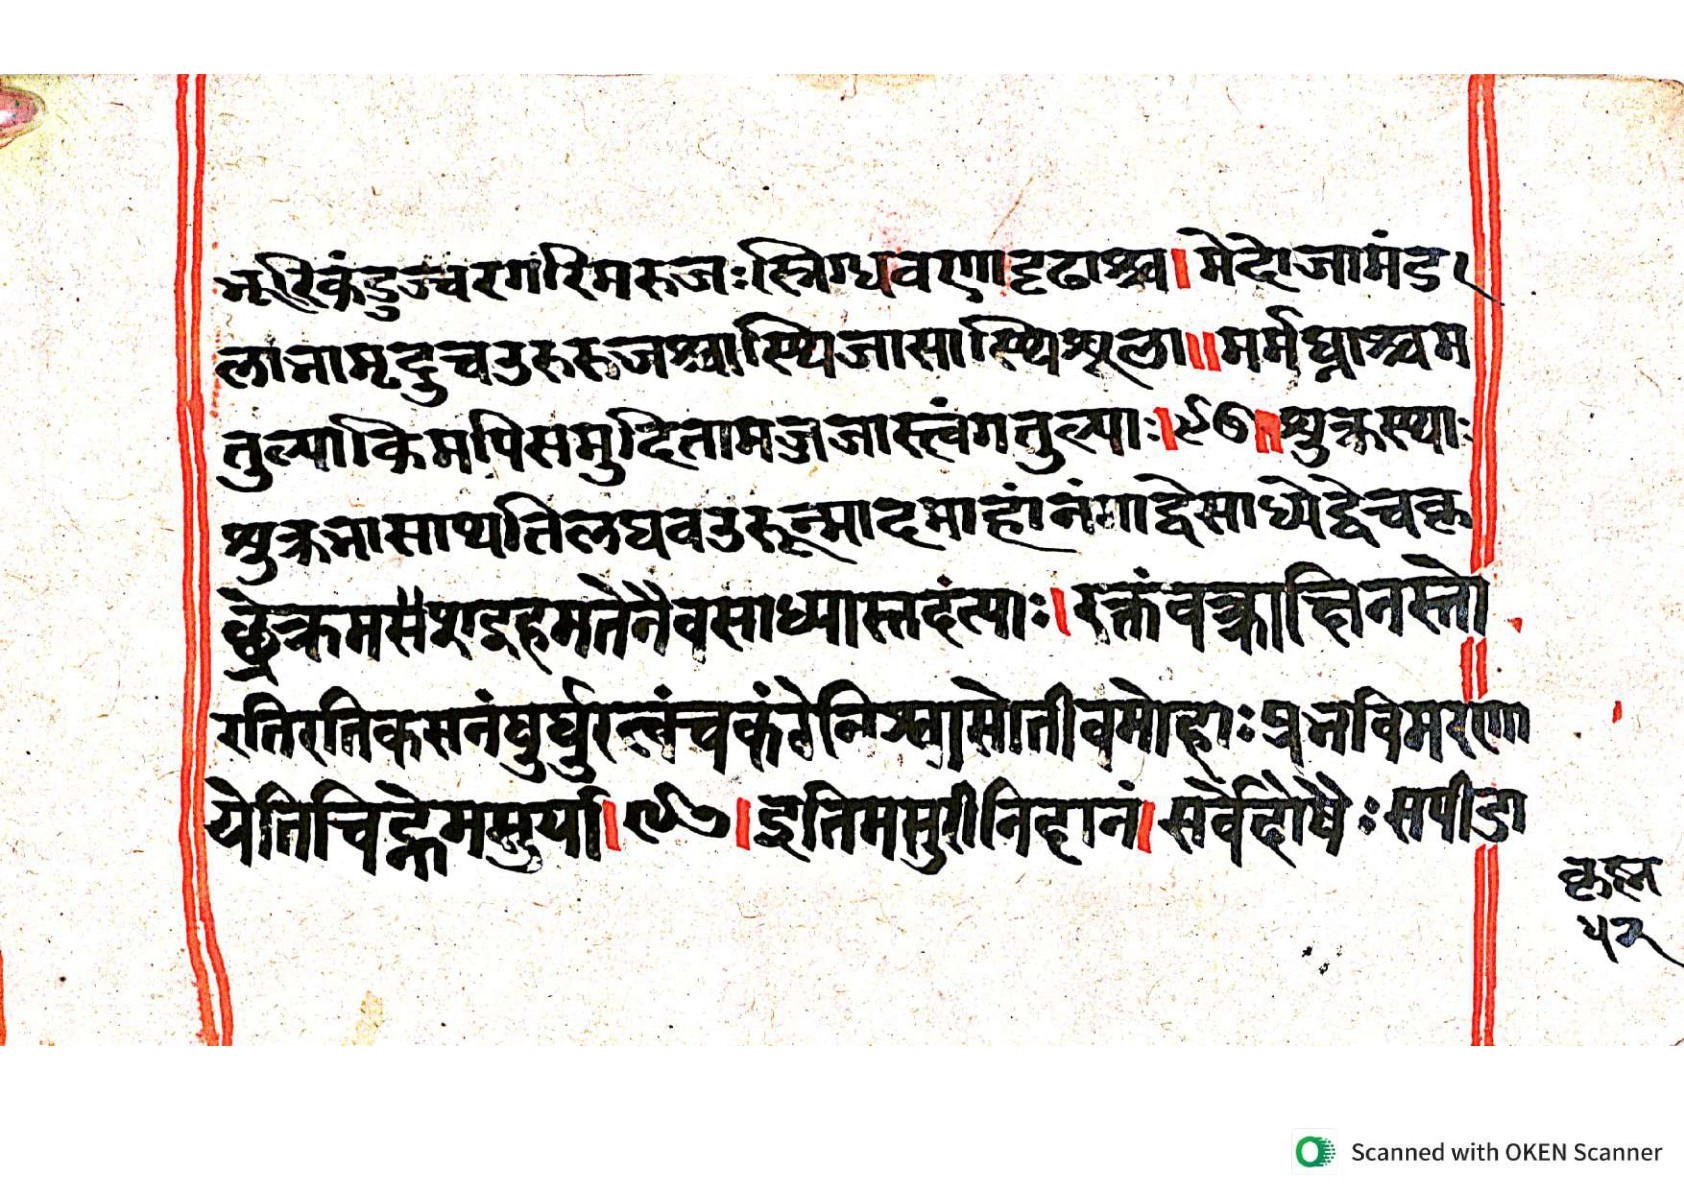 भूरिकंडुज्वरगरिमरुजःस्निग्धवर्णादृढाश्च।मेदोजामंड
लाभामृदुचउरुरुजश्चास्थिजासास्थिशूला॥मर्मघ्नाश्चम
तुल्याकिमपिसमुदितामज्जजास्त्वंगतुल्याः।९६॥शुक्रस्थाः
शुक्रभासाथतिलघवउरून्मादमाहांनंगाद्वेसाध्येद्वेचकृ
छ्रेक्रमस इहमतेनैवसाध्यास्तदंत्याः।रक्तंवक्त्रान्निनस्तो
रतिरतिकसनंघुर्घुरत्वंचकंठेनिश्वासोतीवमोहाःप्रभविमरणा
येतिचिह्नेमसुर्या।९७।इतिमसुरीनिदानं।सर्वेर्दोषैःसपीडा
कृष्ण
५२
Scanned with OKEN Scanner